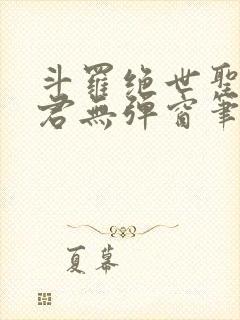 斗羅绝世聖
君無弹窗筆
夏幕